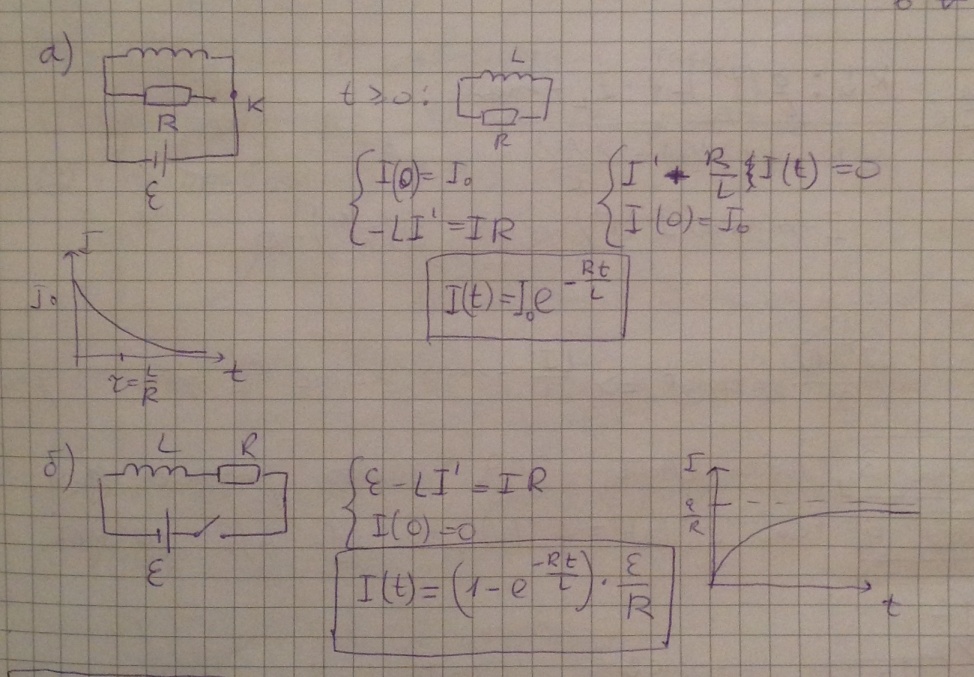 а)
K
R
ε
t ≥ 0:
L
R
{ I(0) = I₀
-LI' = IR
{ I' + R/L I(t) = 0
I(0) = I₀
I(t) = I₀e^(-Rt/L)
I
I₀
τ = L/R
t
б)
L R
ε
{ ε - LI' = IR
I(0) = 0
I(t) = (1 - e^(-Rt/L)) · ε/R
I
ε/R
t